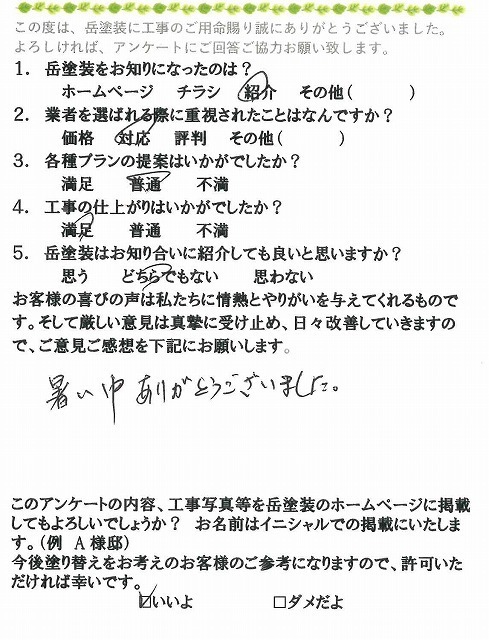 この度は、岳塗装に工事のご用命賜り誠にありがとうございました。
よろしければ、アンケートにご回答ご協力お願い致します。
1. 岳塗装をお知りになったのは？
ホームページ チラシ 紹介 その他( )
2. 業者を選ばれる際に重視されたことはなんですか？
価格 対応 評判 その他( )
3. 各種プランの提案はいかがでしたか？
満足 普通 不満
4. 工事の仕上がりはいかがでしたか？
満足 普通 不満
5. 岳塗装はお知り合いに紹介しても良いと思いますか？
思う どちらでもない 思わない
お客様の喜びの声は私たちに情熱とやりがいを与えてくれるもので
す。そして厳しい意見は真摯に受け止め、日々改善していきますの
で、ご意見ご感想を下記にお願いします。
暑い中ありがとうございました。
このアンケートの内容、工事写真等を岳塗装のホームページに掲載
してもよろしいでしょうか？ お名前はイニシャルでの掲載にいたしま
す。(例 A 様邸)
今後塗り替えをお考えのお客様のご参考になりますので、許可いた
だければ幸いです。
☑いいよ □ダメだよ